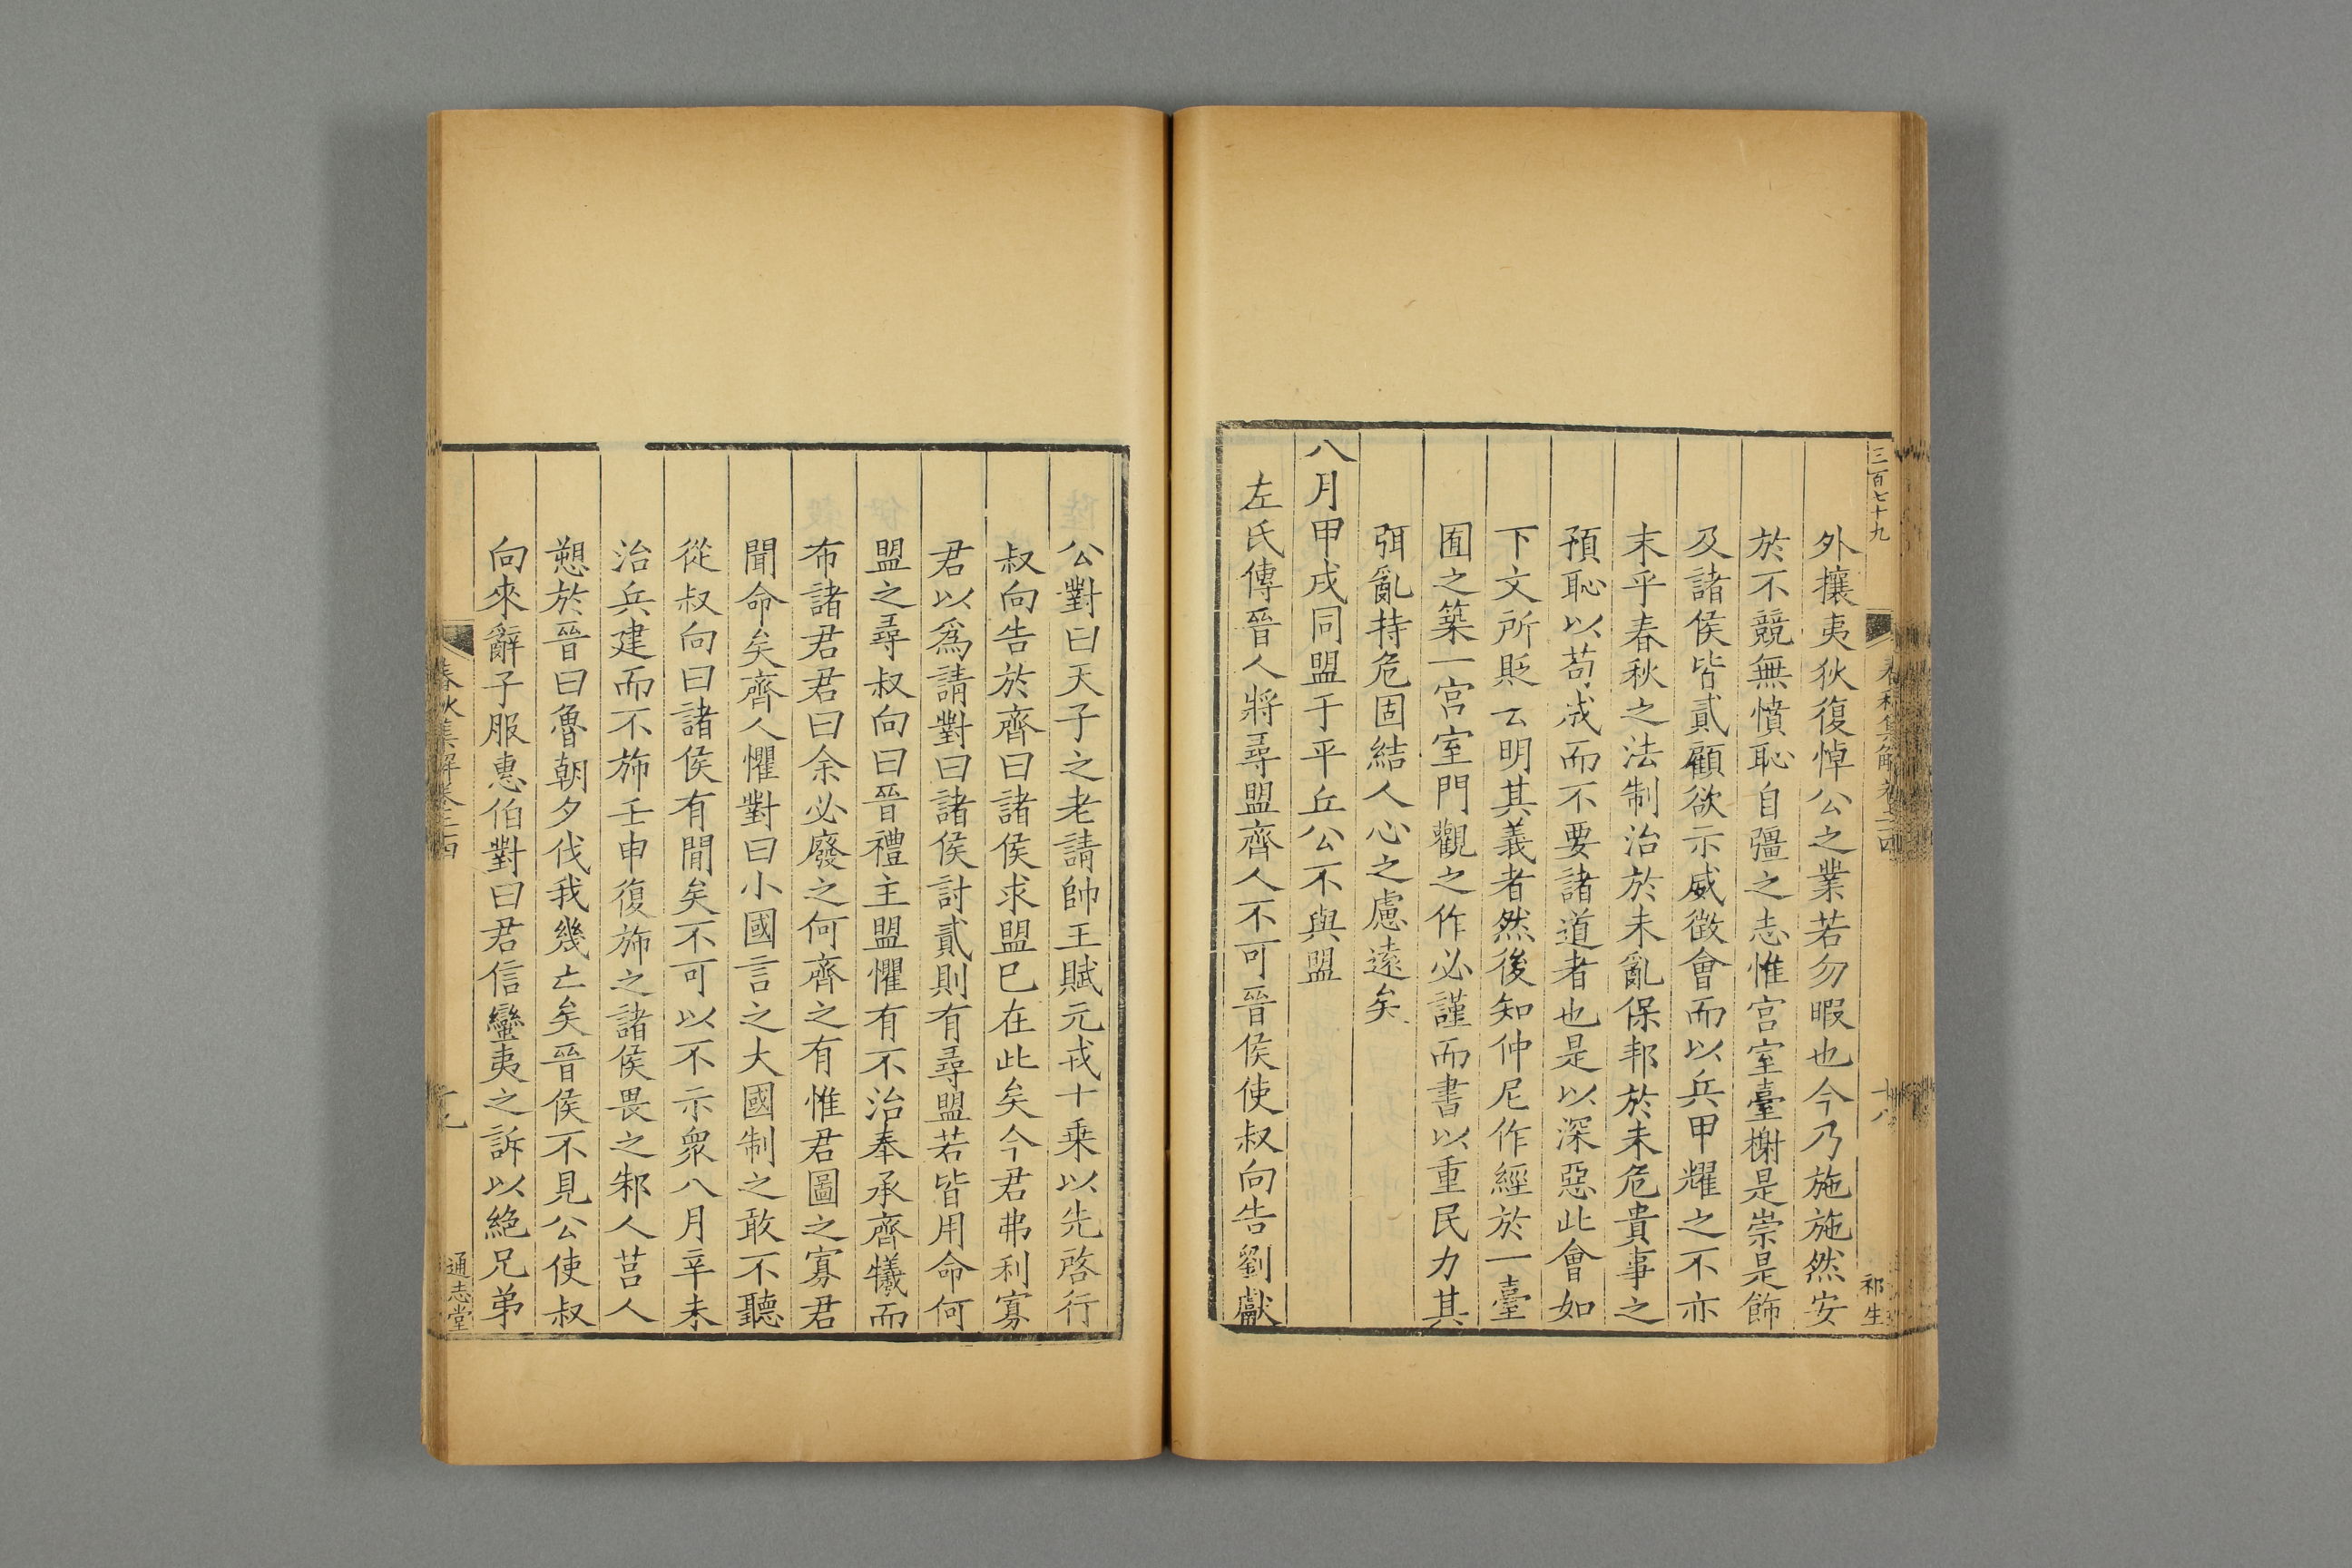 三百七十九
春秋集解卷二十四
十八
祁生
外攘夷狄復悼公之業若勿暇也今乃施施然安
於不競無憤恥自彊之志惟宫室臺榭是崇是飾
及諸侯皆貳顧欲示威徴會而以兵甲耀之不亦
末乎春秋之法制治於未亂保邦於未危貴事之
預恥以苟成而不要諸道者也是以深惡此會如
下文所貶云明其義者然後知仲尼作經於一臺
囿之築一宫室門觀之作必謹而書以重民力其
弭亂持危固結人心之慮遠矣
八月甲戌同盟于平丘公不與盟
左氏傳晉人將尋盟齊人不可晉侯使叔向告劉獻
公對曰天子之老請帥王賦元戎十乗以先啓行
叔向告於齊曰諸侯求盟已在此矣今君弗利寡
君以爲請對曰諸侯討貳則有尋盟若皆用命何
盟之尋叔向曰晉禮主盟懼有不治奉承齊犧而
布諸君君曰余必廢之何齊之有惟君圖之寡君
聞命矣齊人懼對曰小國言之大國制之敢不聽
從叔向曰諸侯有間矣不可以不示衆八月辛未
治兵建而不斾壬申復斾之諸侯畏之邾人莒人
愬於晉曰魯朝夕伐我幾亡矣晉侯不見公使叔
向來辭子服惠伯對曰君信蠻夷之訴以絶兄弟
春秋集解卷二十四
十九
通志堂